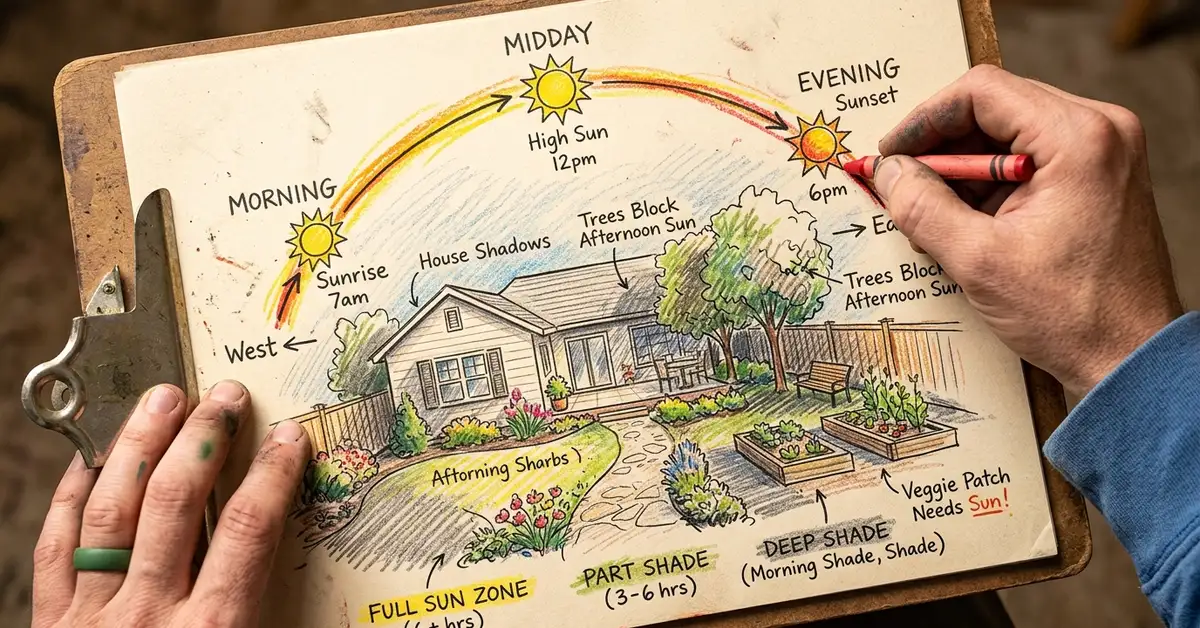 MIDDAY
High Sun
12pm
EVENING
Sunset
6pm
MORNING
Sunrise
7am
House Shadows
Trees Block
Afternoon Sun
West
Trees Block
Afternoon Sun
Aftorning Sharbs )
Veggie Patch
Needs Sun!
DEEP SHADE
(Morning Shade, Shade)
PART SHADE
(3-6 hrs)
FULL SUN ZONE
hrs)